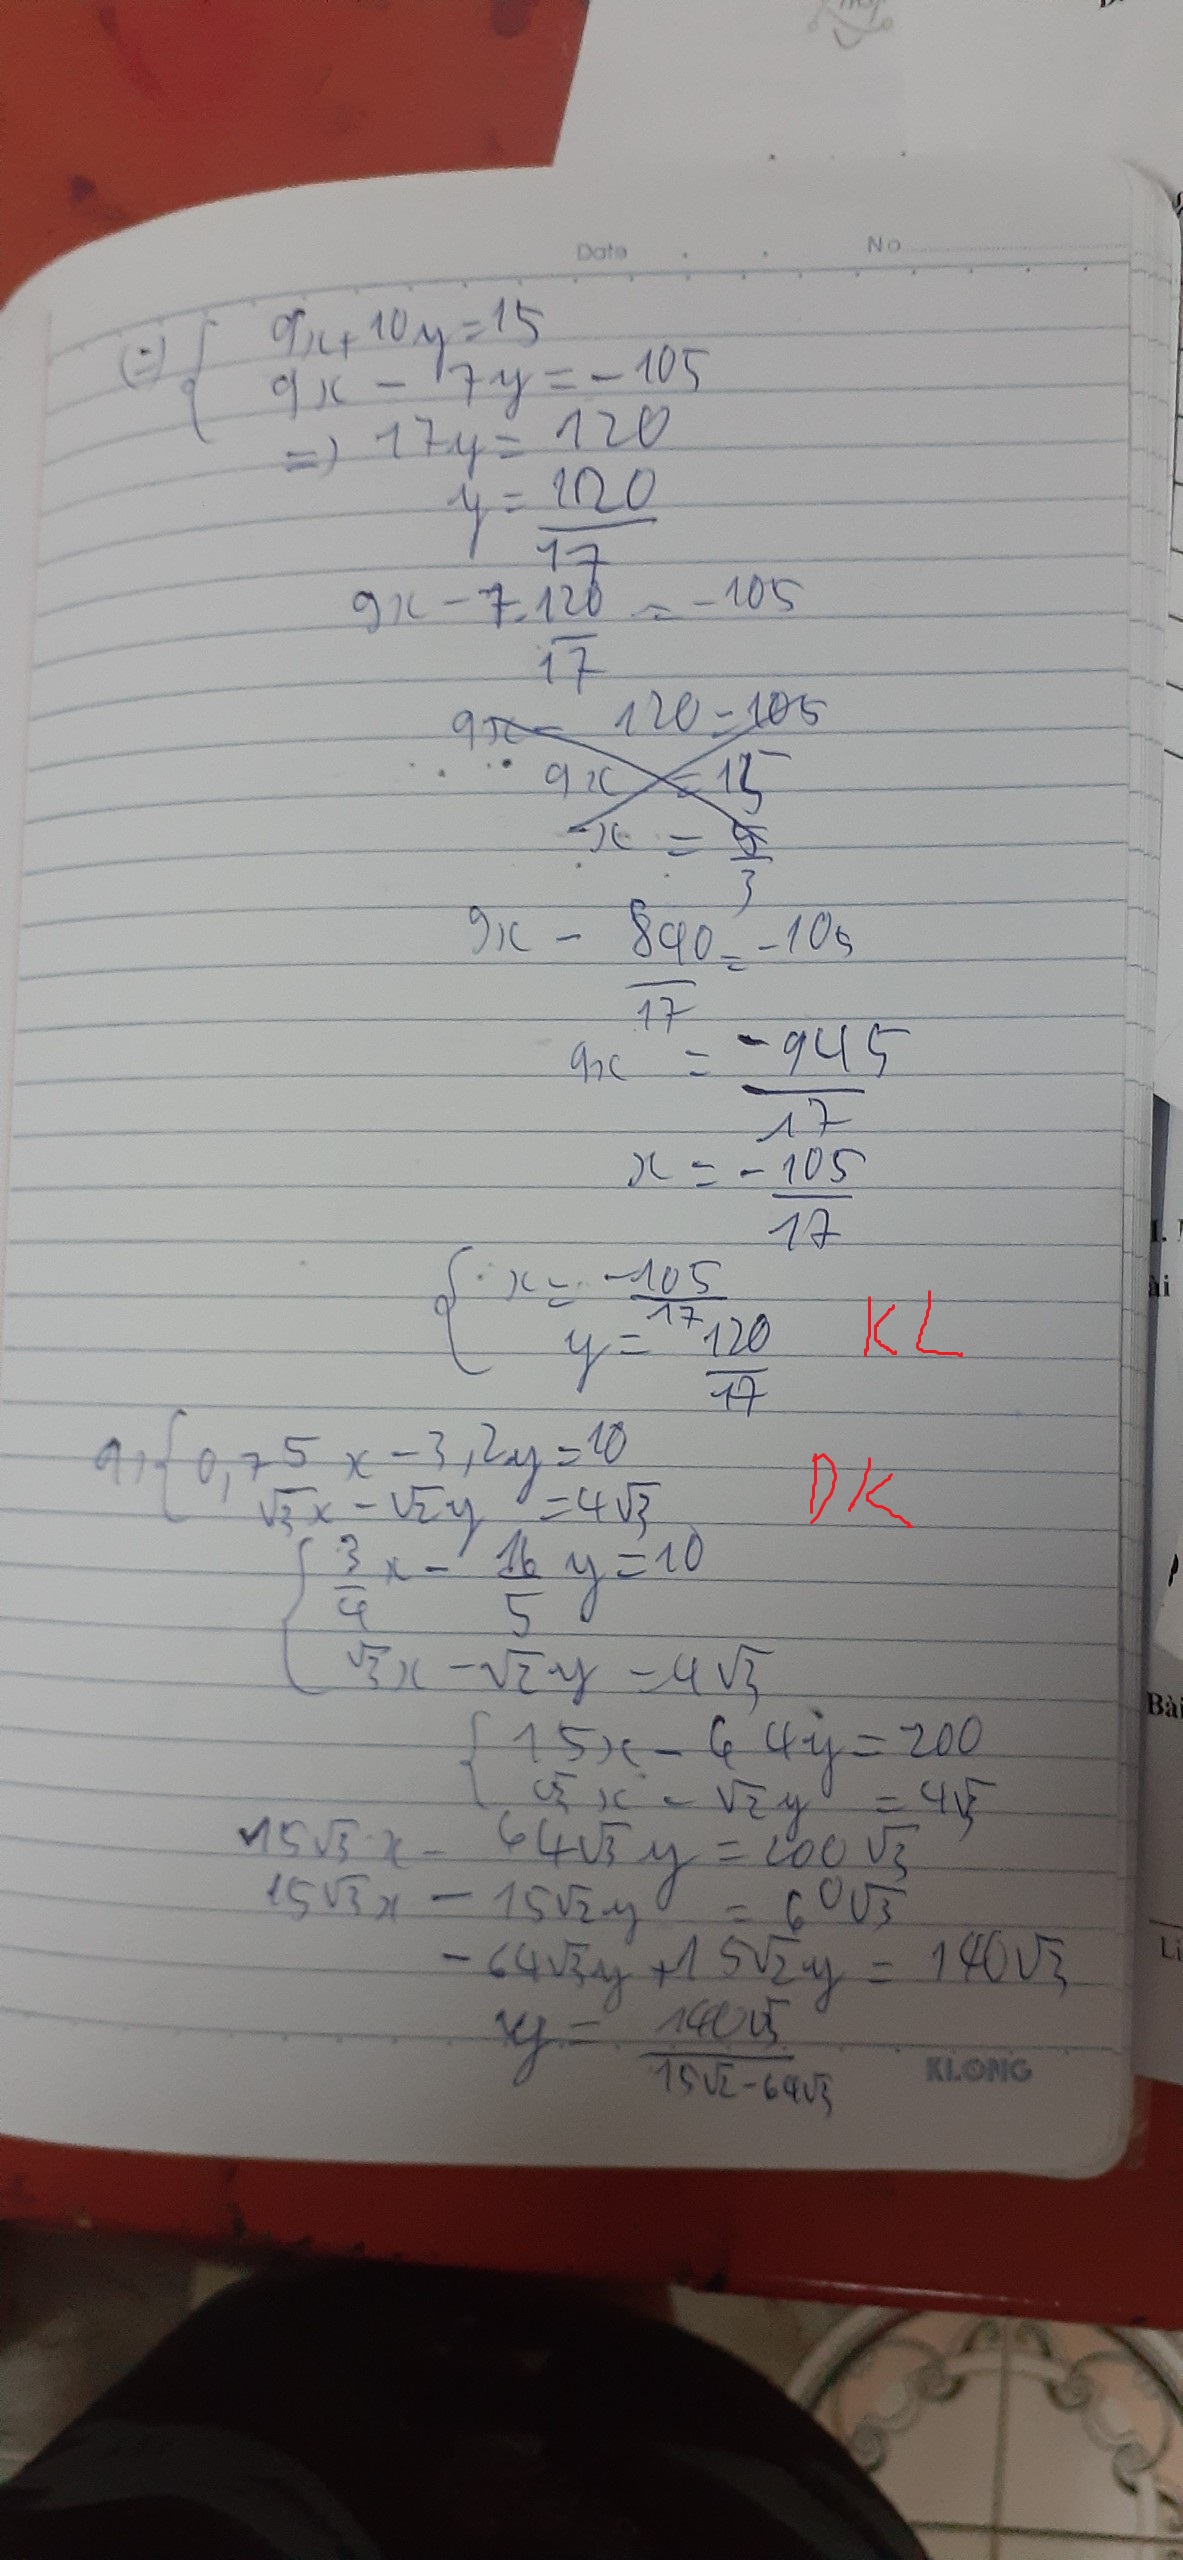 Date No
(=) { 9x + 10y = 15
9x - 7y = -105
=> 17y = 120
y = 120/17
9x - 7.120/17 = -105
9x - 120 = 105
9x = 15
x = 5/3
9x - 840/17 = -105
9x = -945/17
x = -105/17
{ x = -105/17
y = 120/17 KL
9, { 0,75x - 3,2y = 10
√3x - √2y = 4√3 DK
{ 3/4 x - 16/5 y = 10
√3x - √2y = 4√3
{ 15x - 64y = 200
√3x - √2y = 4√3
15√3x - 64√3y = 200√3
15√3x - 15√2y = 60√3
-64√3y + 15√2y = 140√3
y = 140√3/15√2-64√3
KLONG
1.
ài
Bài
Li